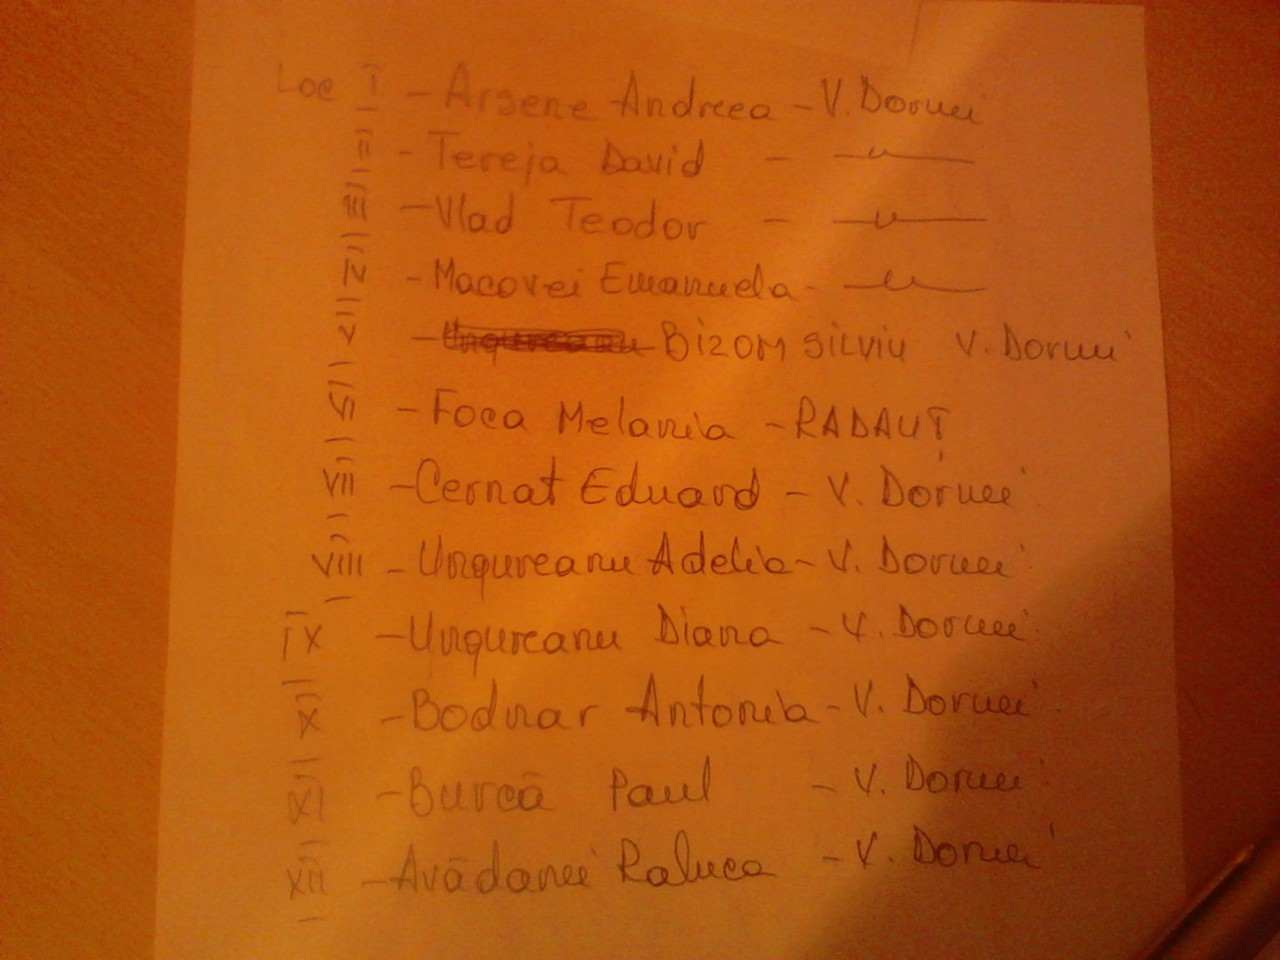 Loc I - Arsene Andreea - V. Dornei
II - Tereja David - —〃—
III - Vlad Teodor - —〃—
IV - Macovei Emanuela - —〃—
V - Ungureanu BIZOM SILVIU V. Dornei
VI - Foca Melania - RADAUȚ
VII - Cernat Eduard - V. Dornei
VIII - Ungureanu Adelia - V. Dornei
IX - Ungureanu Diana - V. Dornei
X - Bodnar Antonia - V. Dornei
XI - Burcă Paul - V. Dornei
XII - Avădanei Raluca - V. Dornei